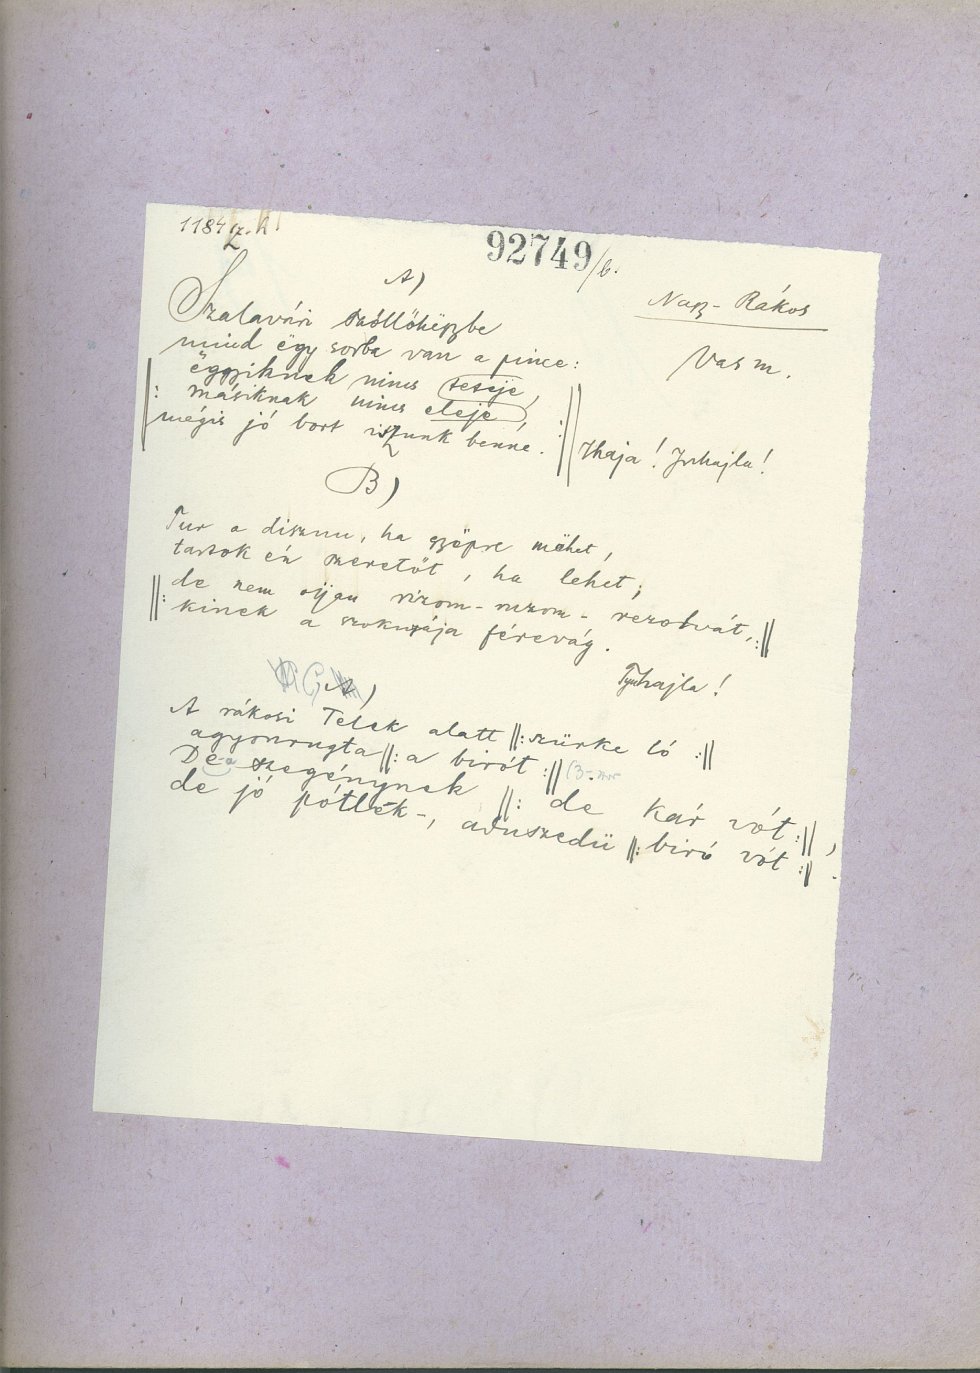 1184
92749/b.
A)
Nagy-Rákos
Vas m.
Szalavári szőllőhëgybe
mind ëgy sorba van a pince:
ëggyiknek nincs teteje,
másiknak nincs eleje,
mégis jó bort iszunk benne. :||
Ihaja! Juhajla!
B)
Tur a disznu, ha gyöpre mëhet,
tartok én szeretőt, ha lehet;
||: de nem ojjan rizom-ruzom-rezolvát, :||
kinek a szoknyája férevág.
Tyuhajla!
A)
A rákosi Telek alatt ||: szürke ló :||
agyonrugta ||: a birót :||
De a szegénynek ||: de kár vót :||,
de jó pótlék-, aduszedü ||: biró vót :||.